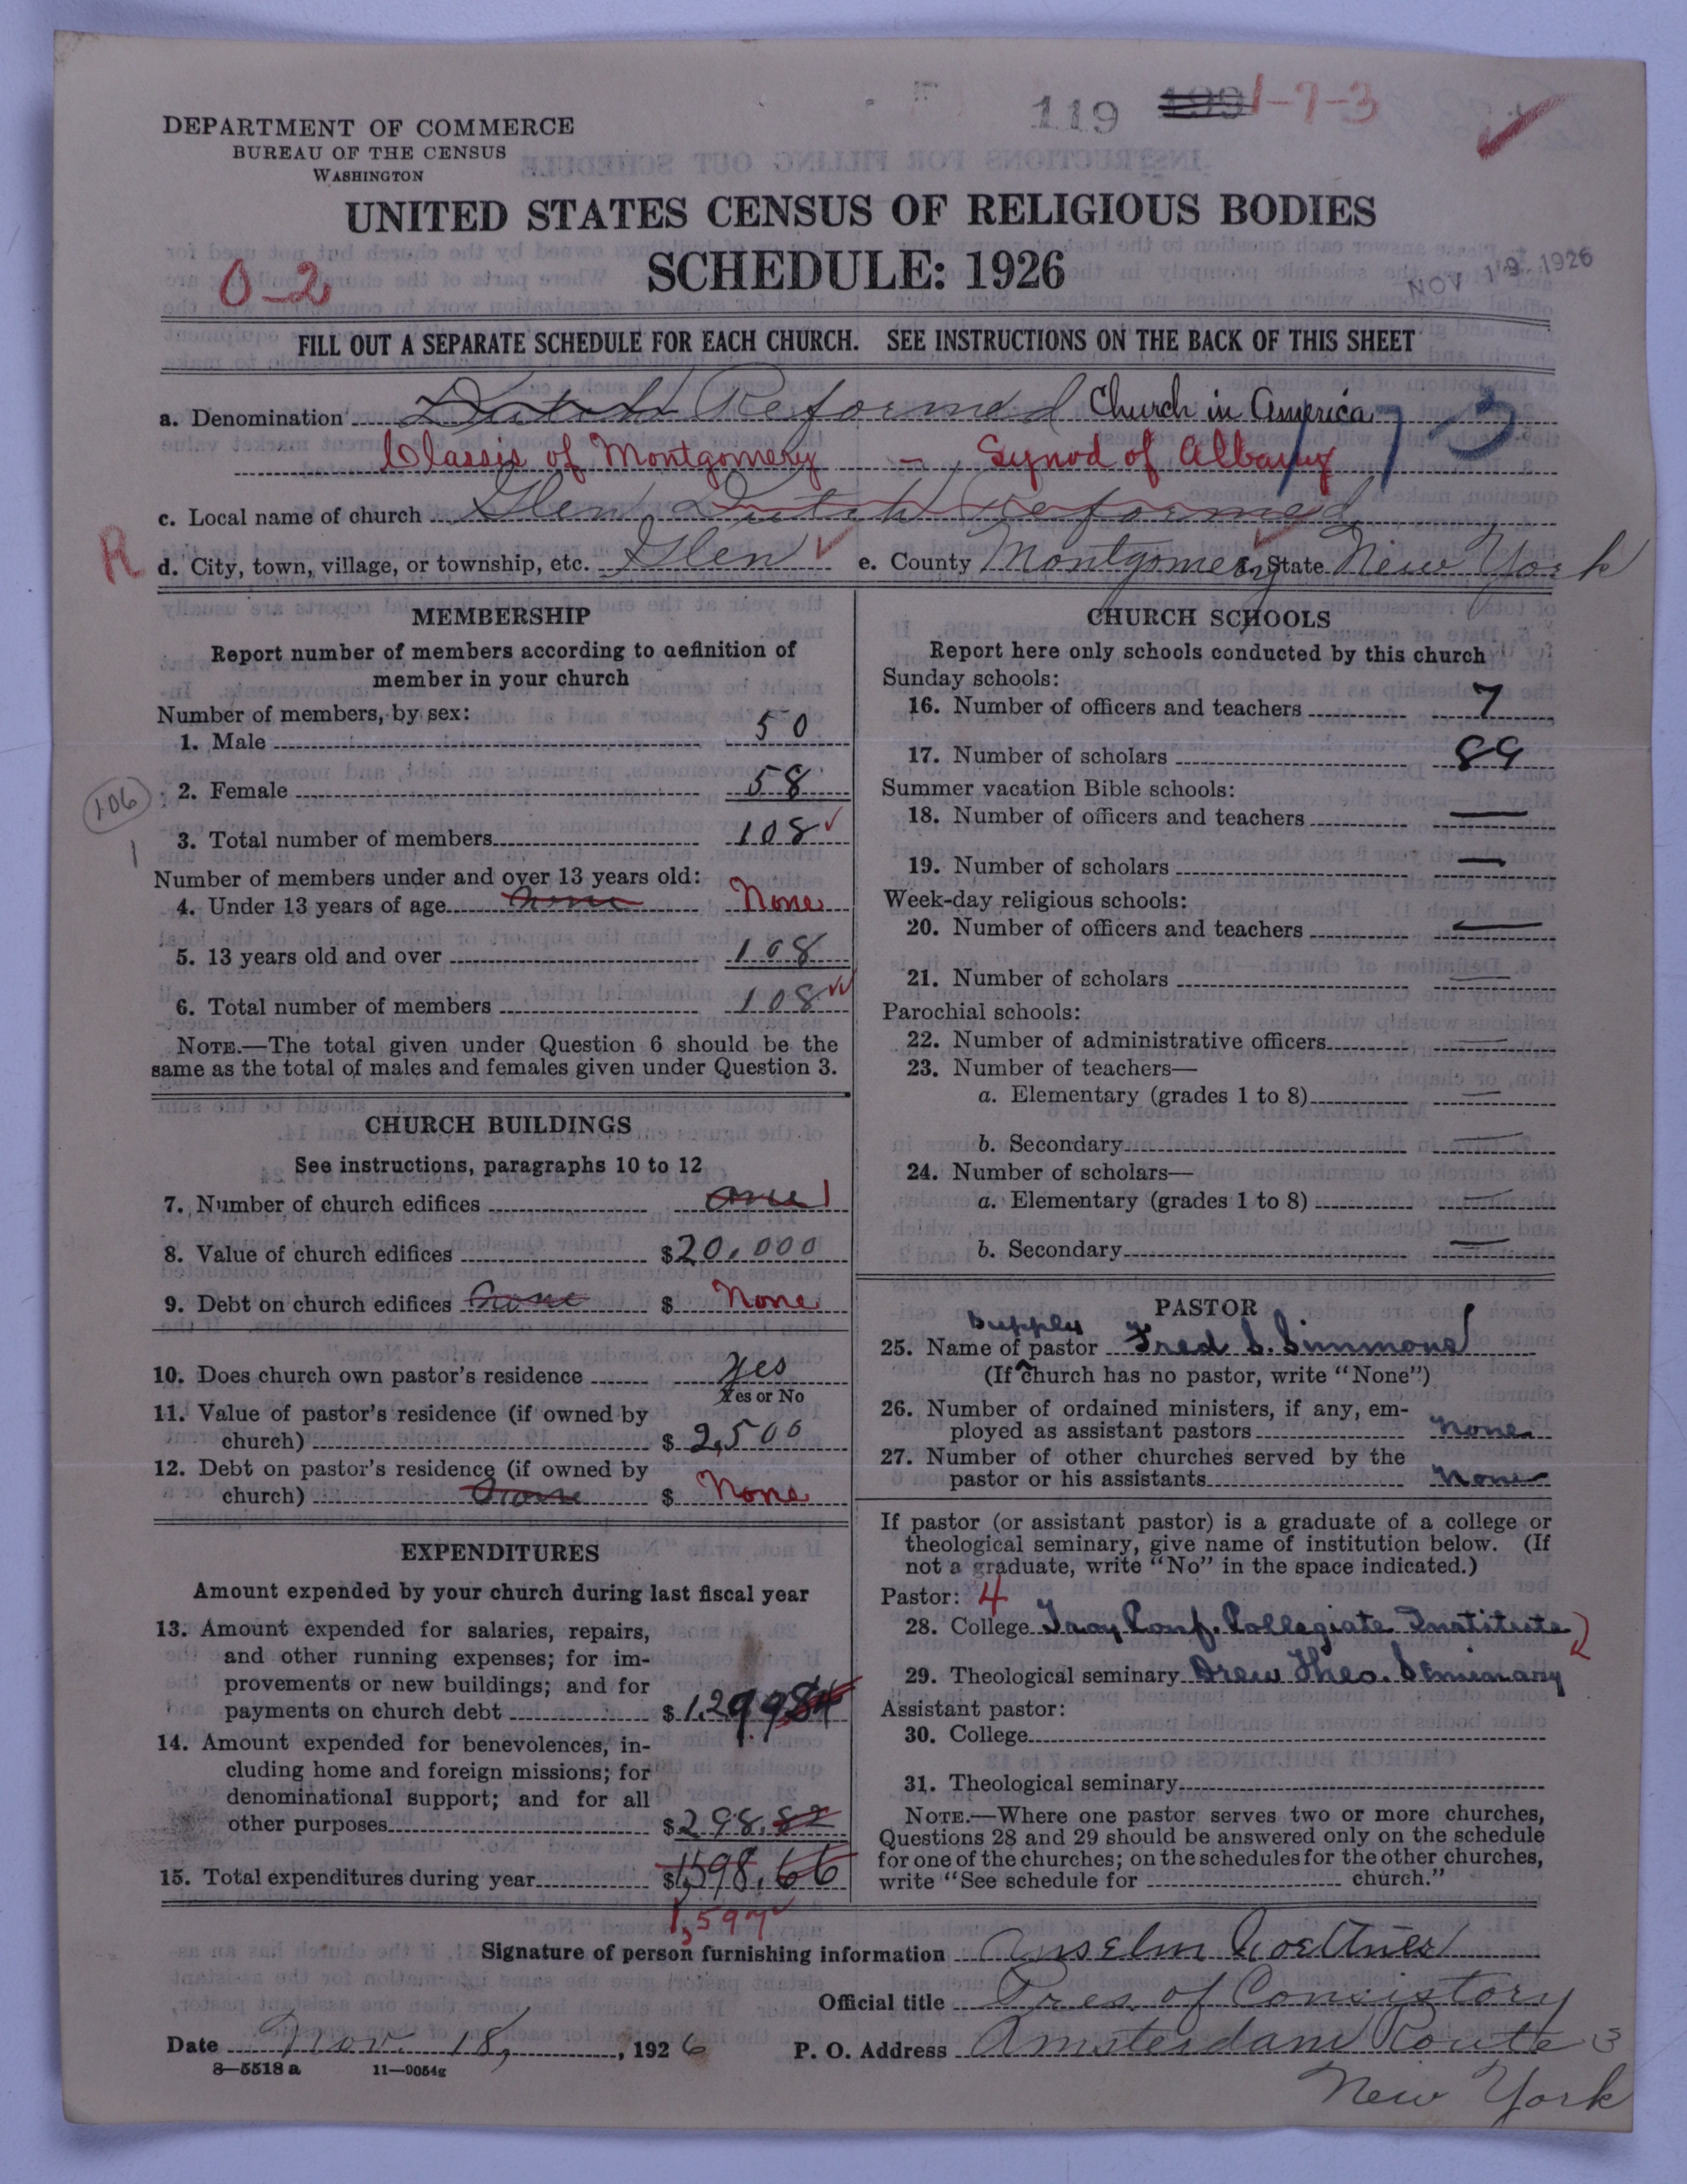 119 1-7-3
DEPARTMENT OF COMMERCE
BUREAU OF THE CENSUS
WASHINGTON
UNITED STATES CENSUS OF RELIGIOUS BODIES
SCHEDULE: 1926
NOV 19 1926
0-2
FILL OUT A SEPARATE SCHEDULE FOR EACH CHURCH. SEE INSTRUCTIONS ON THE BACK OF THIS SHEET
a. Denomination Dutch Reformed Church in America 173
Classis of Montgomery - Synod of Albany
c. Local name of church Glen Dutch Reformed
R d. City, town, village, or township, etc. Glen e. County Montgomery State New York
MEMBERSHIP
Report number of members according to definition of
member in your church
Number of members, by sex:
1. Male 50
2. Female 58
106
3. Total number of members 108
1
Number of members under and over 13 years old:
4. Under 13 years of age none None
5. 13 years old and over 108
6. Total number of members 108
NOTE.—The total given under Question 6 should be the
same as the total of males and females given under Question 3.
CHURCH BUILDINGS
See instructions, paragraphs 10 to 12
7. Number of church edifices one 1
8. Value of church edifices $20,000
9. Debt on church edifices none $ None
10. Does church own pastor's residence Yes
Yes or No
11. Value of pastor's residence (if owned by
church) $ 2,500
12. Debt on pastor's residence (if owned by
church) none $ None
EXPENDITURES
Amount expended by your church during last fiscal year
13. Amount expended for salaries, repairs,
and other running expenses; for im-
provements or new buildings; and for
payments on church debt $1,299.84
14. Amount expended for benevolences, in-
cluding home and foreign missions; for
denominational support; and for all
other purposes $298.82
15. Total expenditures during year $1,598.66
1,597
CHURCH SCHOOLS
Report here only schools conducted by this church
Sunday schools:
16. Number of officers and teachers 7
17. Number of scholars 89
Summer vacation Bible schools:
18. Number of officers and teachers —
19. Number of scholars —
Week-day religious schools:
20. Number of officers and teachers —
21. Number of scholars —
Parochial schools:
22. Number of administrative officers —
23. Number of teachers—
a. Elementary (grades 1 to 8) —
b. Secondary —
24. Number of scholars—
a. Elementary (grades 1 to 8) —
b. Secondary —
PASTOR
Supply
25. Name of pastor Fred S. Simmons
(If church has no pastor, write "None")
26. Number of ordained ministers, if any, em-
ployed as assistant pastors None
27. Number of other churches served by the
pastor or his assistants None
If pastor (or assistant pastor) is a graduate of a college or
theological seminary, give name of institution below. (If
not a graduate, write "No" in the space indicated.)
Pastor: 4
28. College Troy Conf. Collegiate Institute
29. Theological seminary Drew Theo. Seminary
Assistant pastor:
30. College
31. Theological seminary
NOTE.—Where one pastor serves two or more churches,
Questions 28 and 29 should be answered only on the schedule
for one of the churches; on the schedules for the other churches,
write "See schedule for church."
Signature of person furnishing information Anselm
Official title Pres. of Consistory
Date Nov. 18, 1926 P. O. Address Amsterdam Route 3
8—5518 a 11—9054g
New York